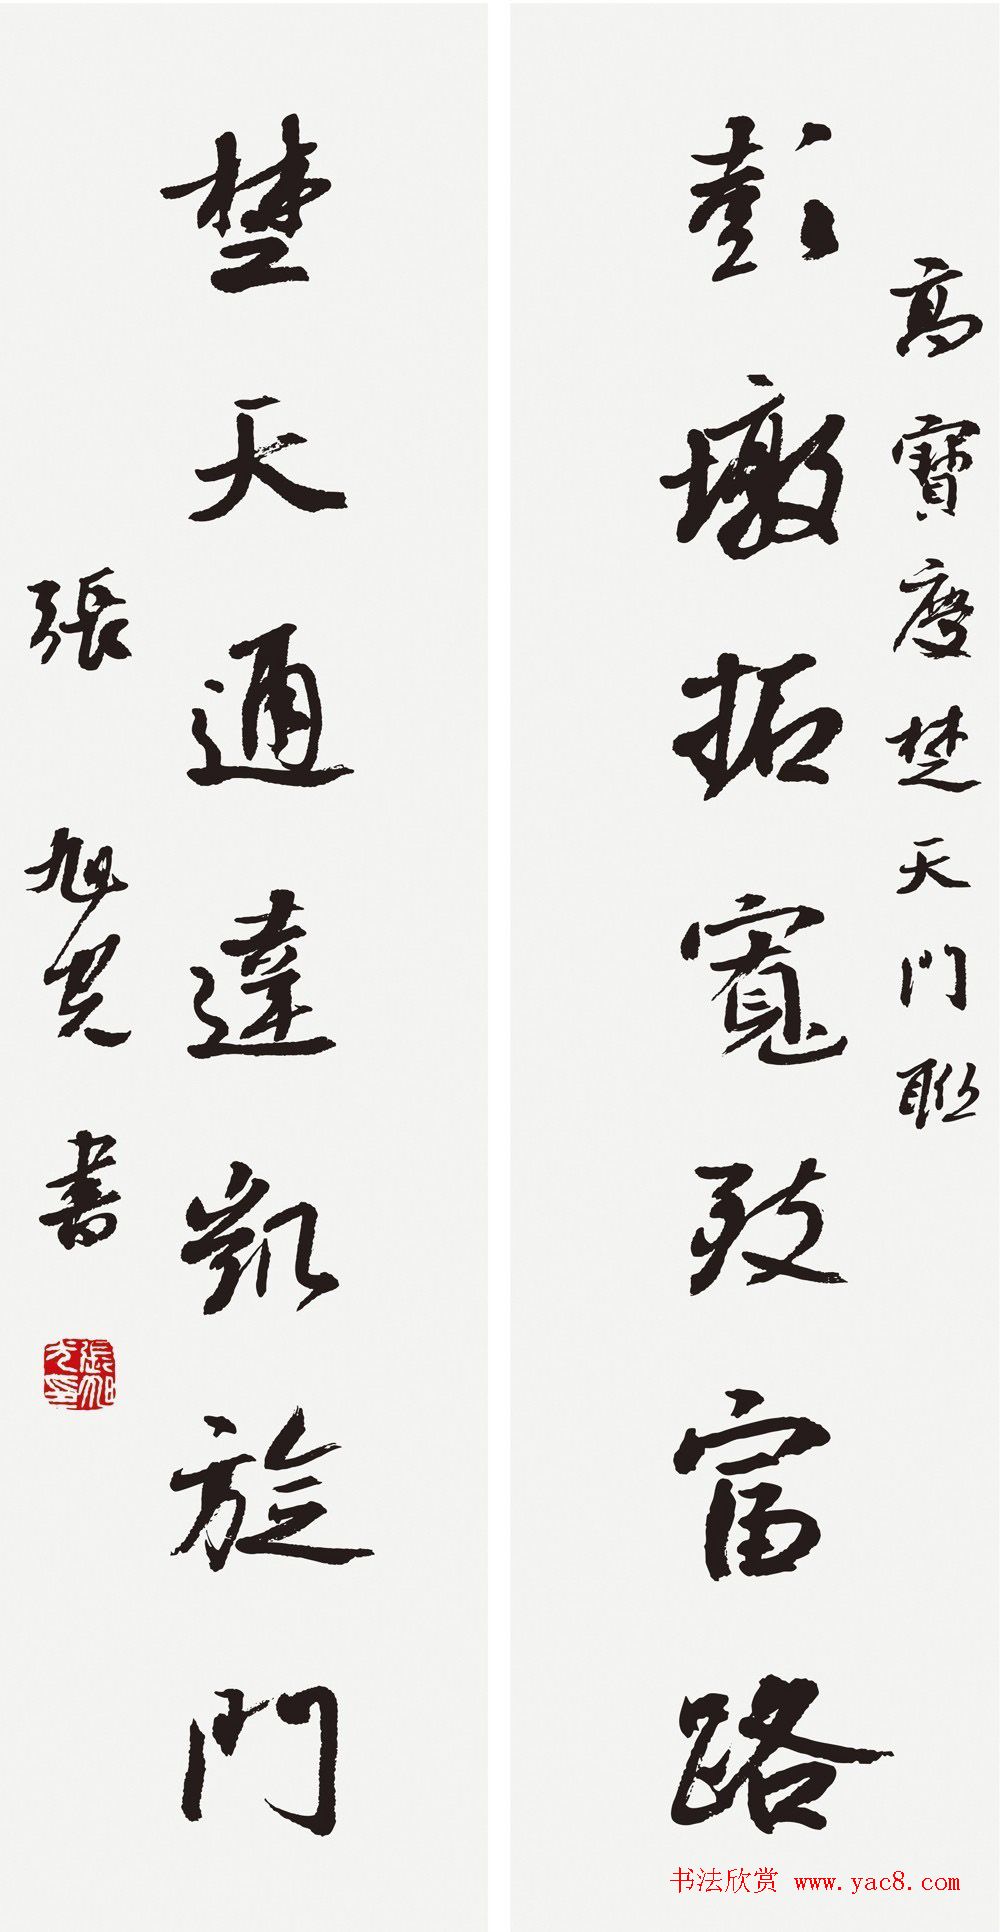 高寶慶楚天門聯
彭墩拓寬致富路
楚天通達凱旋門
張旭光書
張旭光印
书法欣赏 www.yac8.com